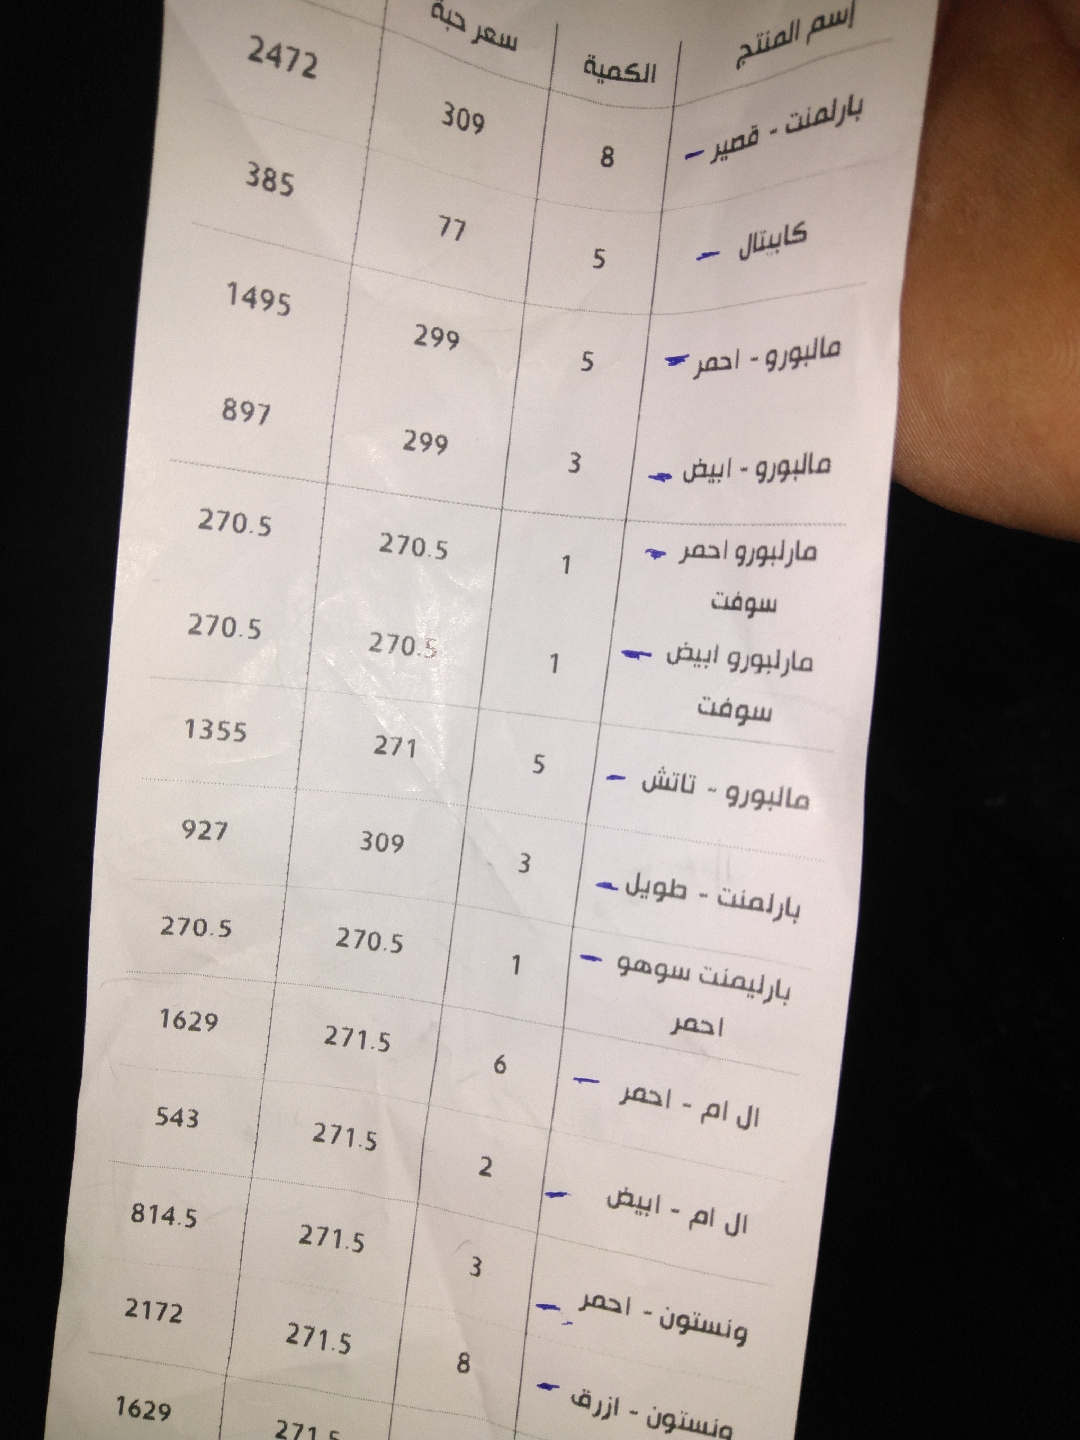 إسم المنتج الكمية سعر حبة
بارلمنت - قصير 8 309 2472
كابيتال 5 77 385
مالبورو - احمر 5 299 1495
مالبورو - ابيض 3 299 897
مارلبورو احمر 1 270.5 270.5
سوفت
مارلبورو ابيض 1 270.5 270.5
سوفت
مالبورو - تاتش 5 271 1355
بارلمنت - طويل 3 309 927
بارليمنت سوهو 1 270.5 270.5
احمر
ال ام - احمر 6 271.5 1629
ال ام - ابيض 2 271.5 543
ونستون - احمر 3 271.5 814.5
ونستون - ازرق 8 271.5 2172
271.5 1629